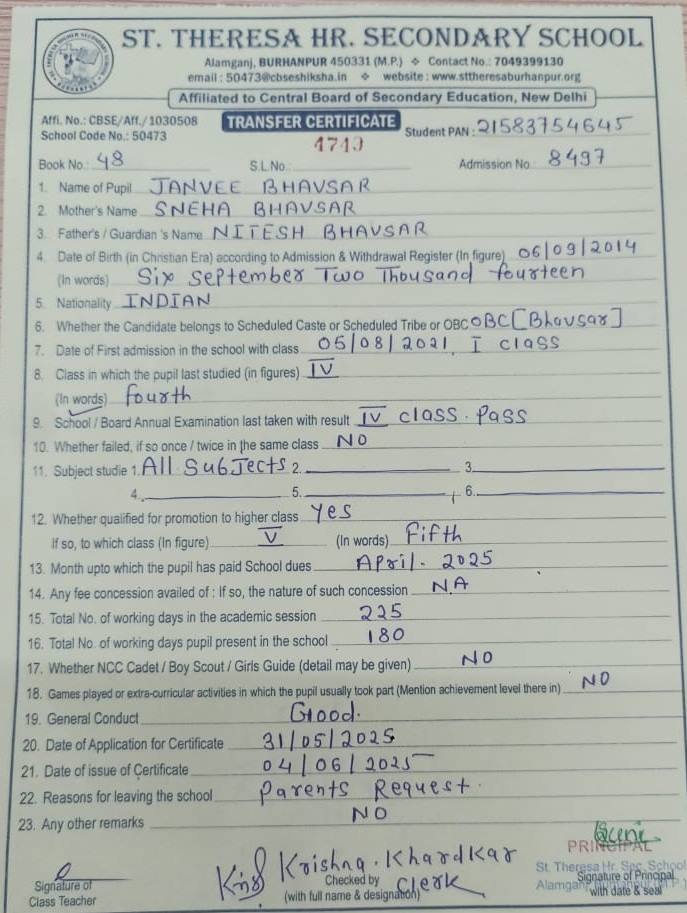 ST. THERESA HR. SECONDARY SCHOOL
Alamganj, BURHANPUR 450331 (M.P.) ❖ Contact No.: 7049399130
email : 50473@cbseshiksha.in ❖ website : www.sttheresaburhanpur.org
Affiliated to Central Board of Secondary Education, New Delhi
Affi. No.: CBSE/Aff./1030508 TRANSFER CERTIFICATE Student PAN: 21583754645
School Code No.: 50473
Book No.: 48 S.L.No. 4749 Admission No. 8497
1. Name of Pupil JANVEE BHAVSAR
2. Mother's Name SNEHA BHAVSAR
3. Father's / Guardian 's Name NITESH BHAVSAR
4. Date of Birth (in Christian Era) according to Admission & Withdrawal Register (In figure) 06/09/2014
(In words) Six September Two Thousand fourteen
5. Nationality INDIAN
6. Whether the Candidate belongs to Scheduled Caste or Scheduled Tribe or OBC OBC [Bhavsar]
7. Date of First admission in the school with class 05/08/2021, I class
8. Class in which the pupil last studied (in figures) IV
(In words) fourth
9. School / Board Annual Examination last taken with result IV class. Pass
10. Whether failed, if so once / twice in the same class NO
11. Subject studie 1. All SubJects 2. 3.
4. 5. 6.
12. Whether qualified for promotion to higher class Yes
If so, to which class (In figure) V (In words) Fifth
13. Month upto which the pupil has paid School dues April. 2025
14. Any fee concession availed of : If so, the nature of such concession N.A
15. Total No. of working days in the academic session 225
16. Total No. of working days pupil present in the school 180
17. Whether NCC Cadet / Boy Scout / Girls Guide (detail may be given) NO
18. Games played or extra-curricular activities in which the pupil usually took part (Mention achievement level there in) NO
19. General Conduct Good.
20. Date of Application for Certificate 31/05/2025
21. Date of issue of Certificate 04/06/2025
22. Reasons for leaving the school Parents Request.
23. Any other remarks NO
PRINCIPAL
Krishna. Khardkar
St. Theresa Hr. Sec. School
Signature of Class Teacher
Checked by Clerk
(with full name & designation)
Signature of Principal
with date & seal
Alamganj